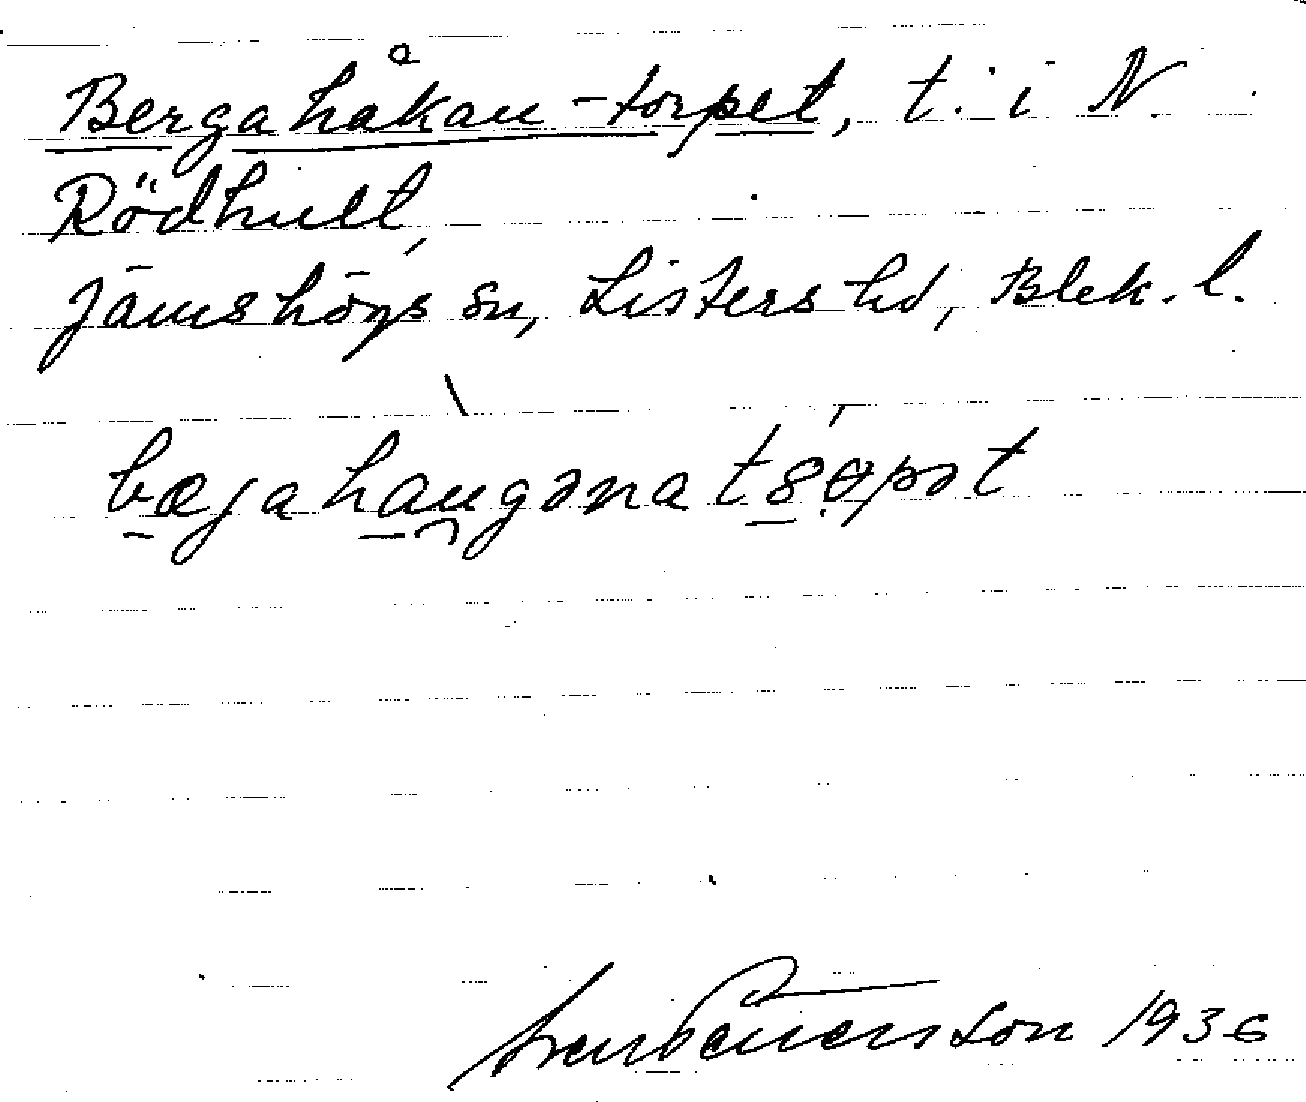 Bergahåkan-torpet, t. i N.
Rödhult,
Jämshögs sn, Listers hd, Blek. l.
1936